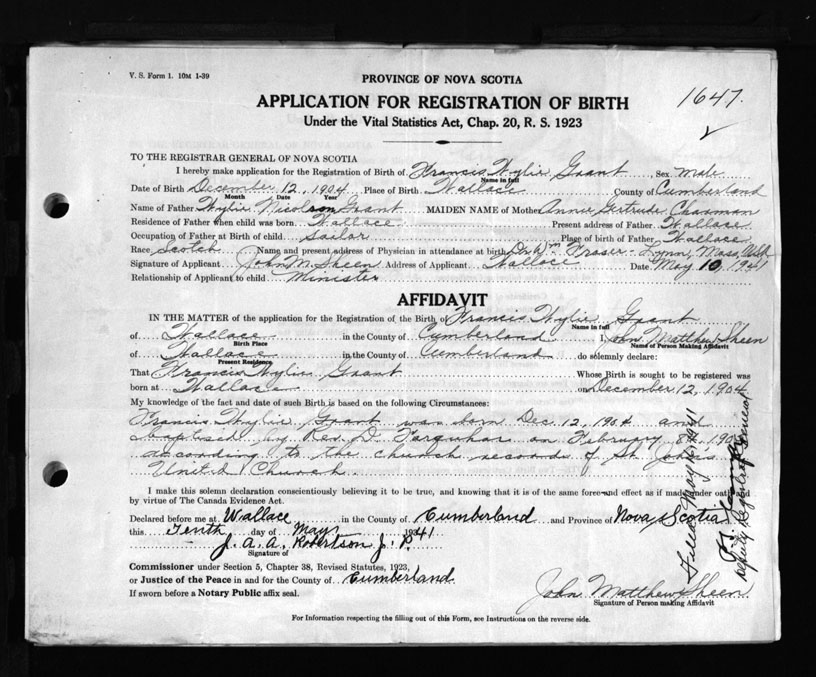 V. S. Form 1. 10M 1-39
PROVINCE OF NOVA SCOTIA
APPLICATION FOR REGISTRATION OF BIRTH
1647.
Under the Vital Statistics Act, Chap. 20, R. S. 1923
TO THE REGISTRAR GENERAL OF NOVA SCOTIA
I hereby make application for the Registration of Birth of Francis Wylie Grant Sex Male
Name in full
Date of Birth December 12, 1904 Place of Birth Wallace County of Cumberland
Month Date Year
Name of Father Wylie Nicolson Grant MAIDEN NAME of Mother Annie Gertrude Chasman
Residence of Father when child was born Wallace Present address of Father Wallace
Occupation of Father at Birth of child Sailor Place of birth of Father Wallace
Race Scotch Name and present address of Physician in attendance at birth Dr. Wm Fraser - Lynn, Mass,
Signature of Applicant John M. Sheen Address of Applicant Wallace Date May 10, 1941
Relationship of Applicant to child Minister
AFFIDAVIT
IN THE MATTER of the application for the Registration of the Birth of Francis Wylie Grant
Name in full
of Wallace in the County of Cumberland I, John Matthew Sheen
Birth Place Name of Person Making Affidavit
of Wallace in the County of Cumberland do solemnly declare:
Present Residence
That Francis Wylie Grant Whose Birth is sought to be registered was
born at Wallace on December 12, 1904
My knowledge of the fact and date of such Birth is based on the following Circumstances:
Francis Wylie Grant was born Dec. 12, 1904 and
baptised by Rev. D. Farquhar on February 8th, 190
according to the church records of St. John's
United Church.
I make this solemn declaration conscientiously believing it to be true, and knowing that it is of the same force and effect as if made under oath and
by virtue of The Canada Evidence Act.
Declared before me at Wallace in the County of Cumberland and Province of Nova Scotia
this Tenth day of May 1941
J. A. A. Robertson J. P.
Signature of
Commissioner under Section 5, Chapter 38, Revised Statutes, 1923,
or Justice of the Peace in and for the County of Cumberland
If sworn before a Notary Public affix seal.
John Matthew Sheen
Signature of Person making Affidavit
For Information respecting the filling out of this Form, see Instructions on the reverse side.
Filed May 1941
Deputy Registrar General